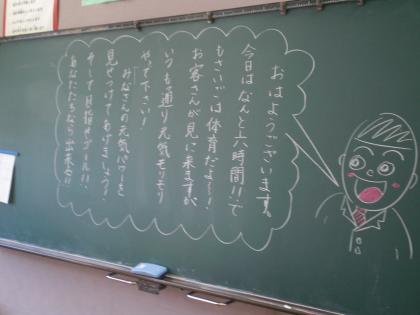 おはようございます。
今日はなんと六時間!!で
もさいごは体育だよ〜!
お客さんが見に来ますが、
いつも通り元気モリモリ
やって下さい!
みなさんの元気パワーを
見せつけてあげましょう!
そして目指せゴール!!
あなたたちなら出来る!!